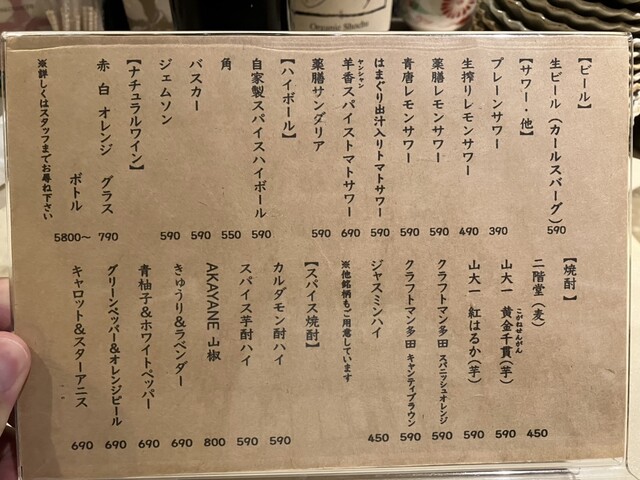 Organic Shochu
【ビール】
生ビール（カールスバーグ）590
【サワー・他】
プレーンサワー 390
生搾りレモンサワー 490
薬膳レモンサワー 590
青唐レモンサワー 590
はまぐり出汁入りトマトサワー 590
羊香スパイストマトサワー 690
ヤンシャン
薬膳サングリア 590
【ハイボール】
自家製スパイスハイボール 590
角 550
バスカー 590
ジェムソン 590
【ナチュラルワイン】
赤 白 オレンジ グラス 790
ボトル 5800〜
※詳しくはスタッフまでお尋ね下さい
【焼酎】
二階堂（麦） 450
山大一 黄金千貫（芋） 590
こがねせんがん
山大一 紅はるか（芋） 590
クラフトマン多田 スパニッシュオレンジ 590
クラフトマン多田 キャンティブラウン 590
ジャスミンハイ 450
※他銘柄もご用意しています
【スパイス焼酎】
カルダモン酎ハイ 590
スパイス芋酎ハイ 590
AKAYANE 山椒 800
きゅうり＆ラベンダー 690
青柚子＆ホワイトペッパー 690
グリーンペッパー＆オレンジピール 690
キャロット＆スターアニス 690